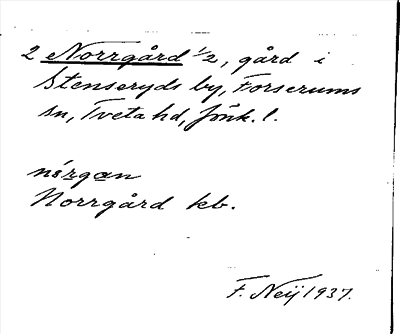 2 Norrgård 1/2, gård i
Stenseryds by, Forserums
sn, Tveta hd, Jönk. l.
nórgan
Norrgård kb.
F. Neij 1937.